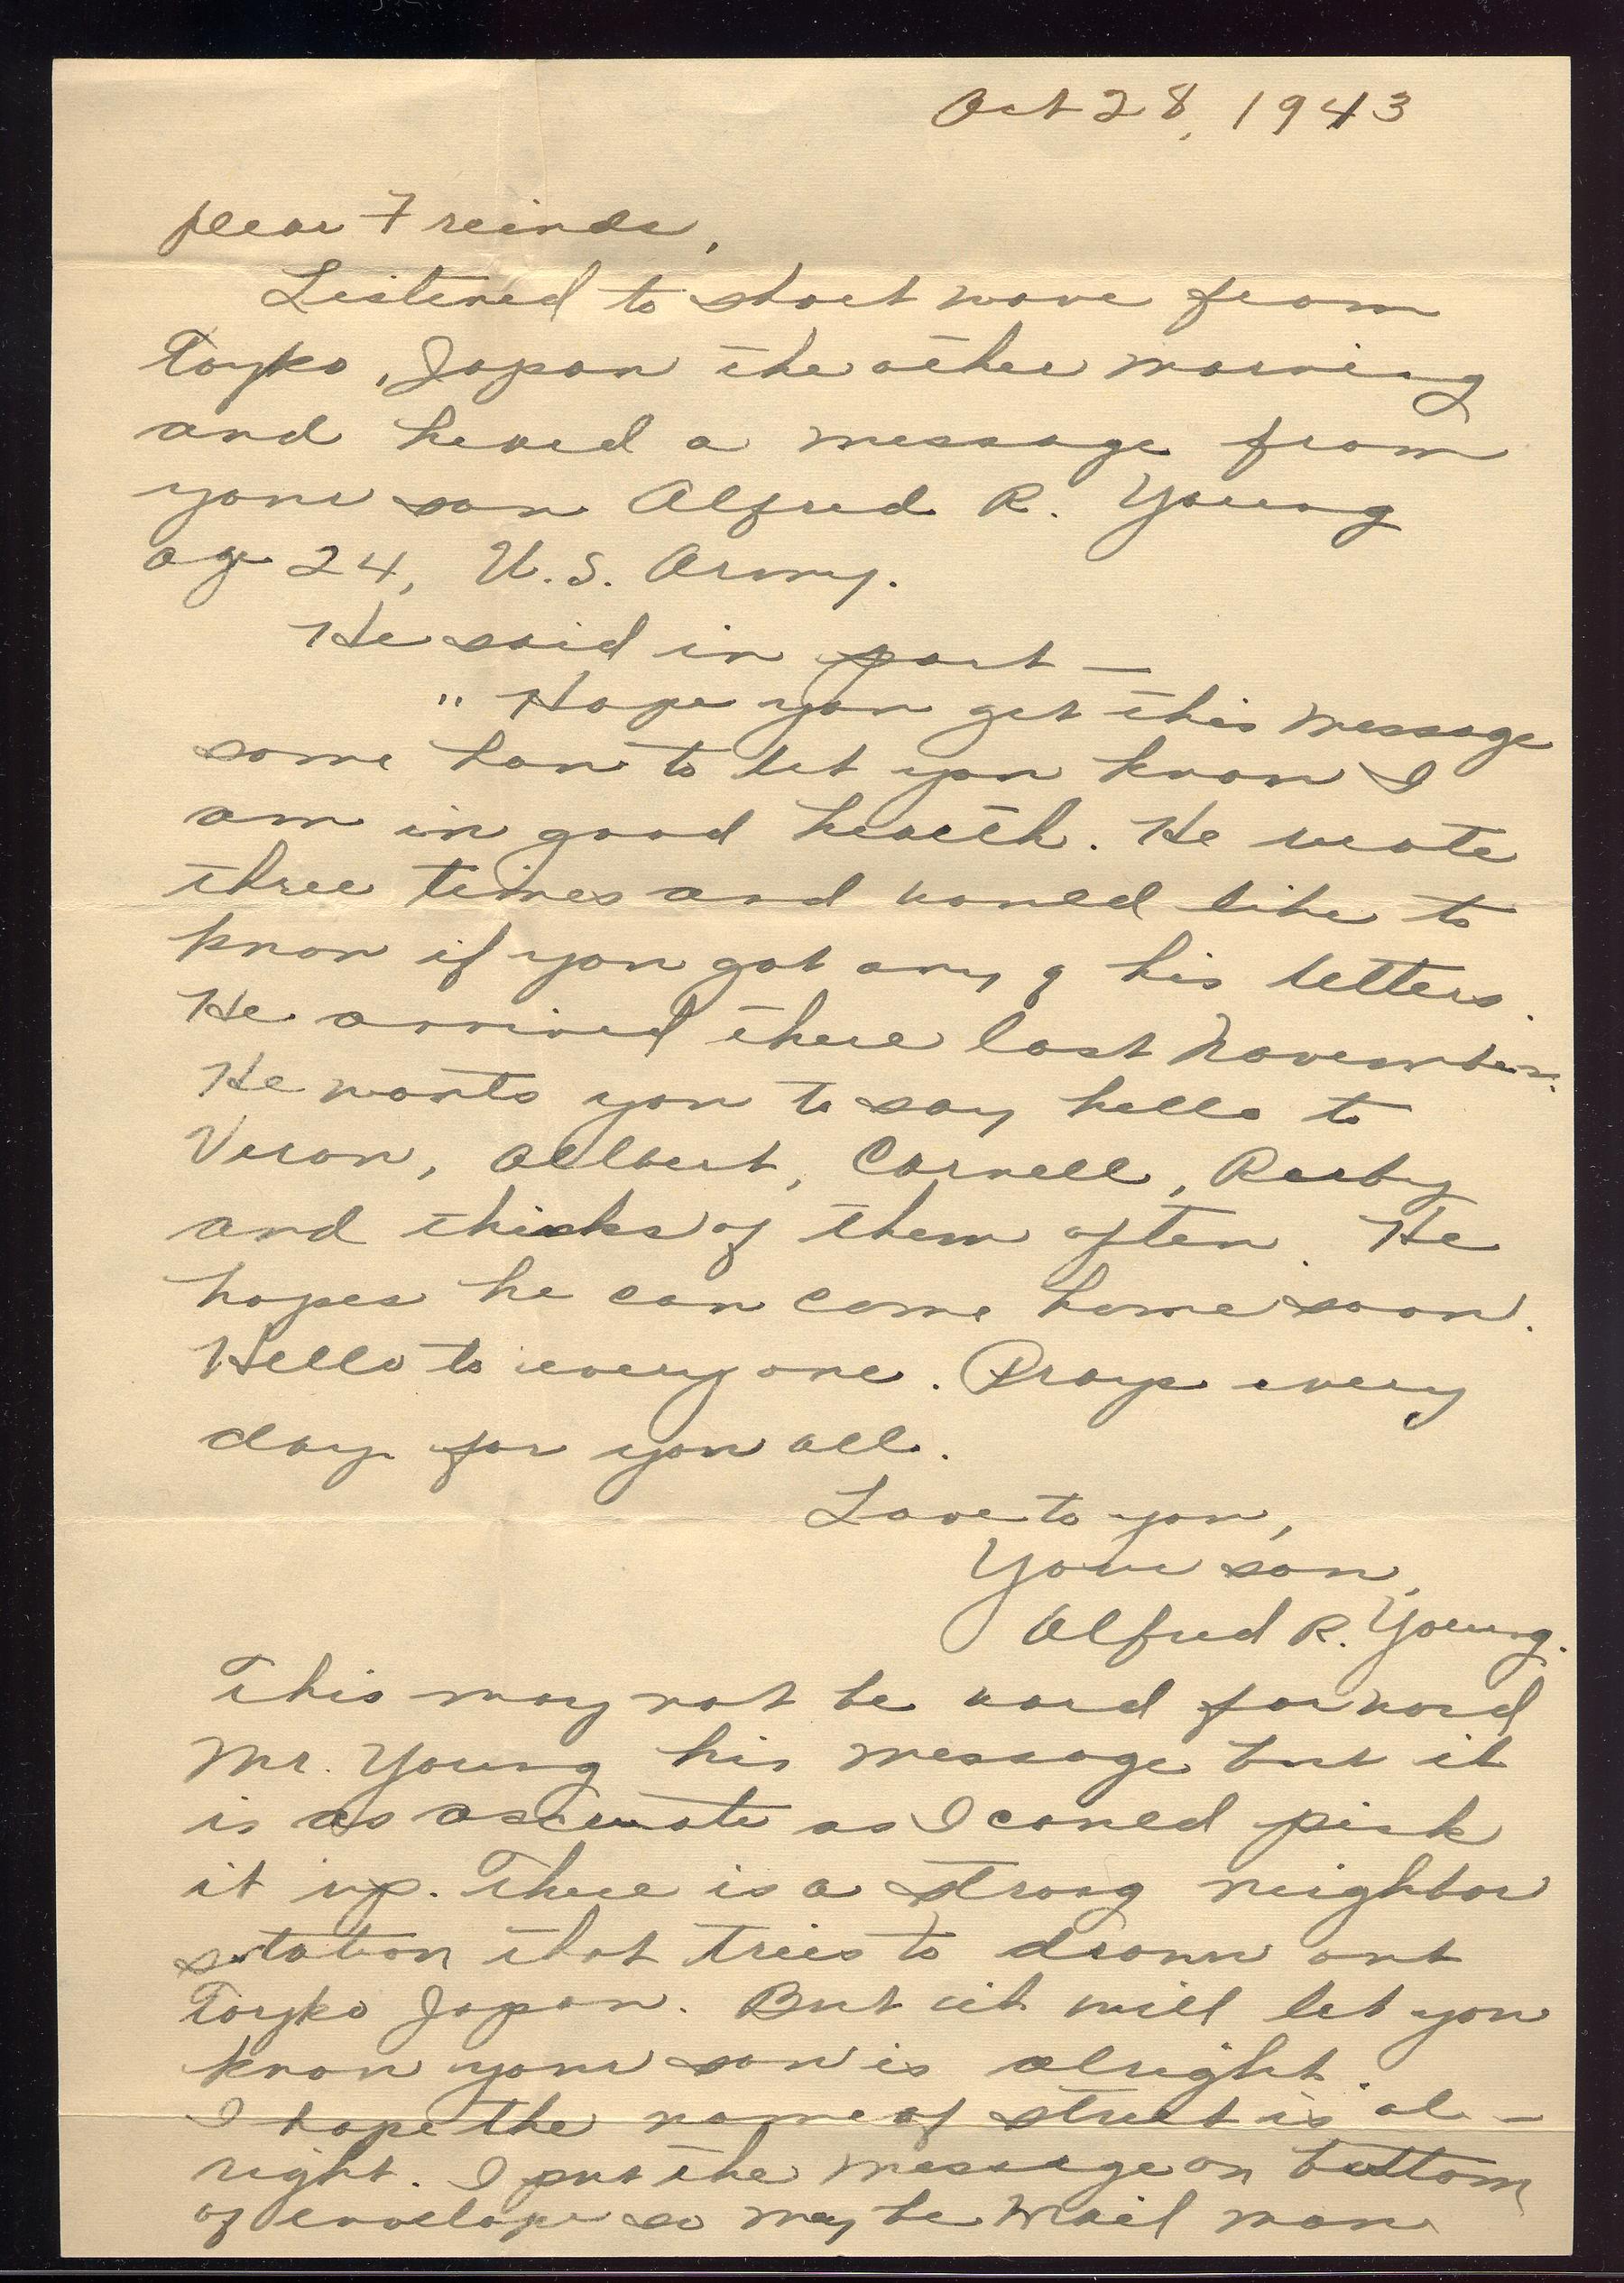 Oct 28, 1943
Dear Freinds,
Listened to short wave from
Toyko, Japan the other morning
and heard a message from
your son Alfred R. Young
age 24, U.S. Army.
He said in part —
" Hope you get this message
some how to let you know I
am in good health. He wrote
three times and would like to
know if you got any of his letters.
He arrived there last November.
He wants you to say hello to
Veron, Allbert, Cornell, Ruby
and thinks of them often. He
hopes he can come home soon.
Hello to everyone. Prays every
day for you all.
Love to you,
Your son,
Alfred R. Young.
This may not be word for word
Mr. Young his message but it
is as accurate as I could pick
it up. There is a strong neighbor
station that tries to drown out
Toyko Japan. But it will let you
know your son is alright.
I hope the name of street is al-
right. I put the message on bottom
of envelope so may be mail man